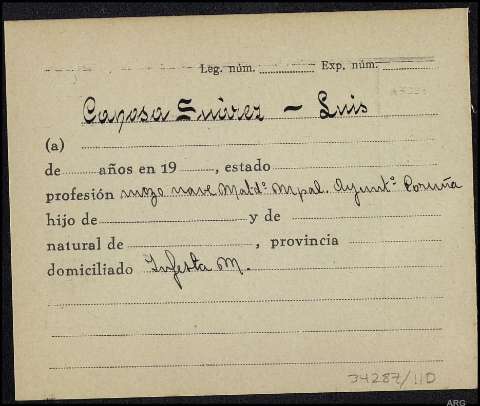 Leg. núm. Exp. núm.
Caposa Suárez - Luis
(a)
de años en 19 , estado
profesión mozo nave Matdº Mpal. Ayuntº Coruña
hijo de y de
natural de , provincia
domiciliado Infesta M.
34287/110
ARG